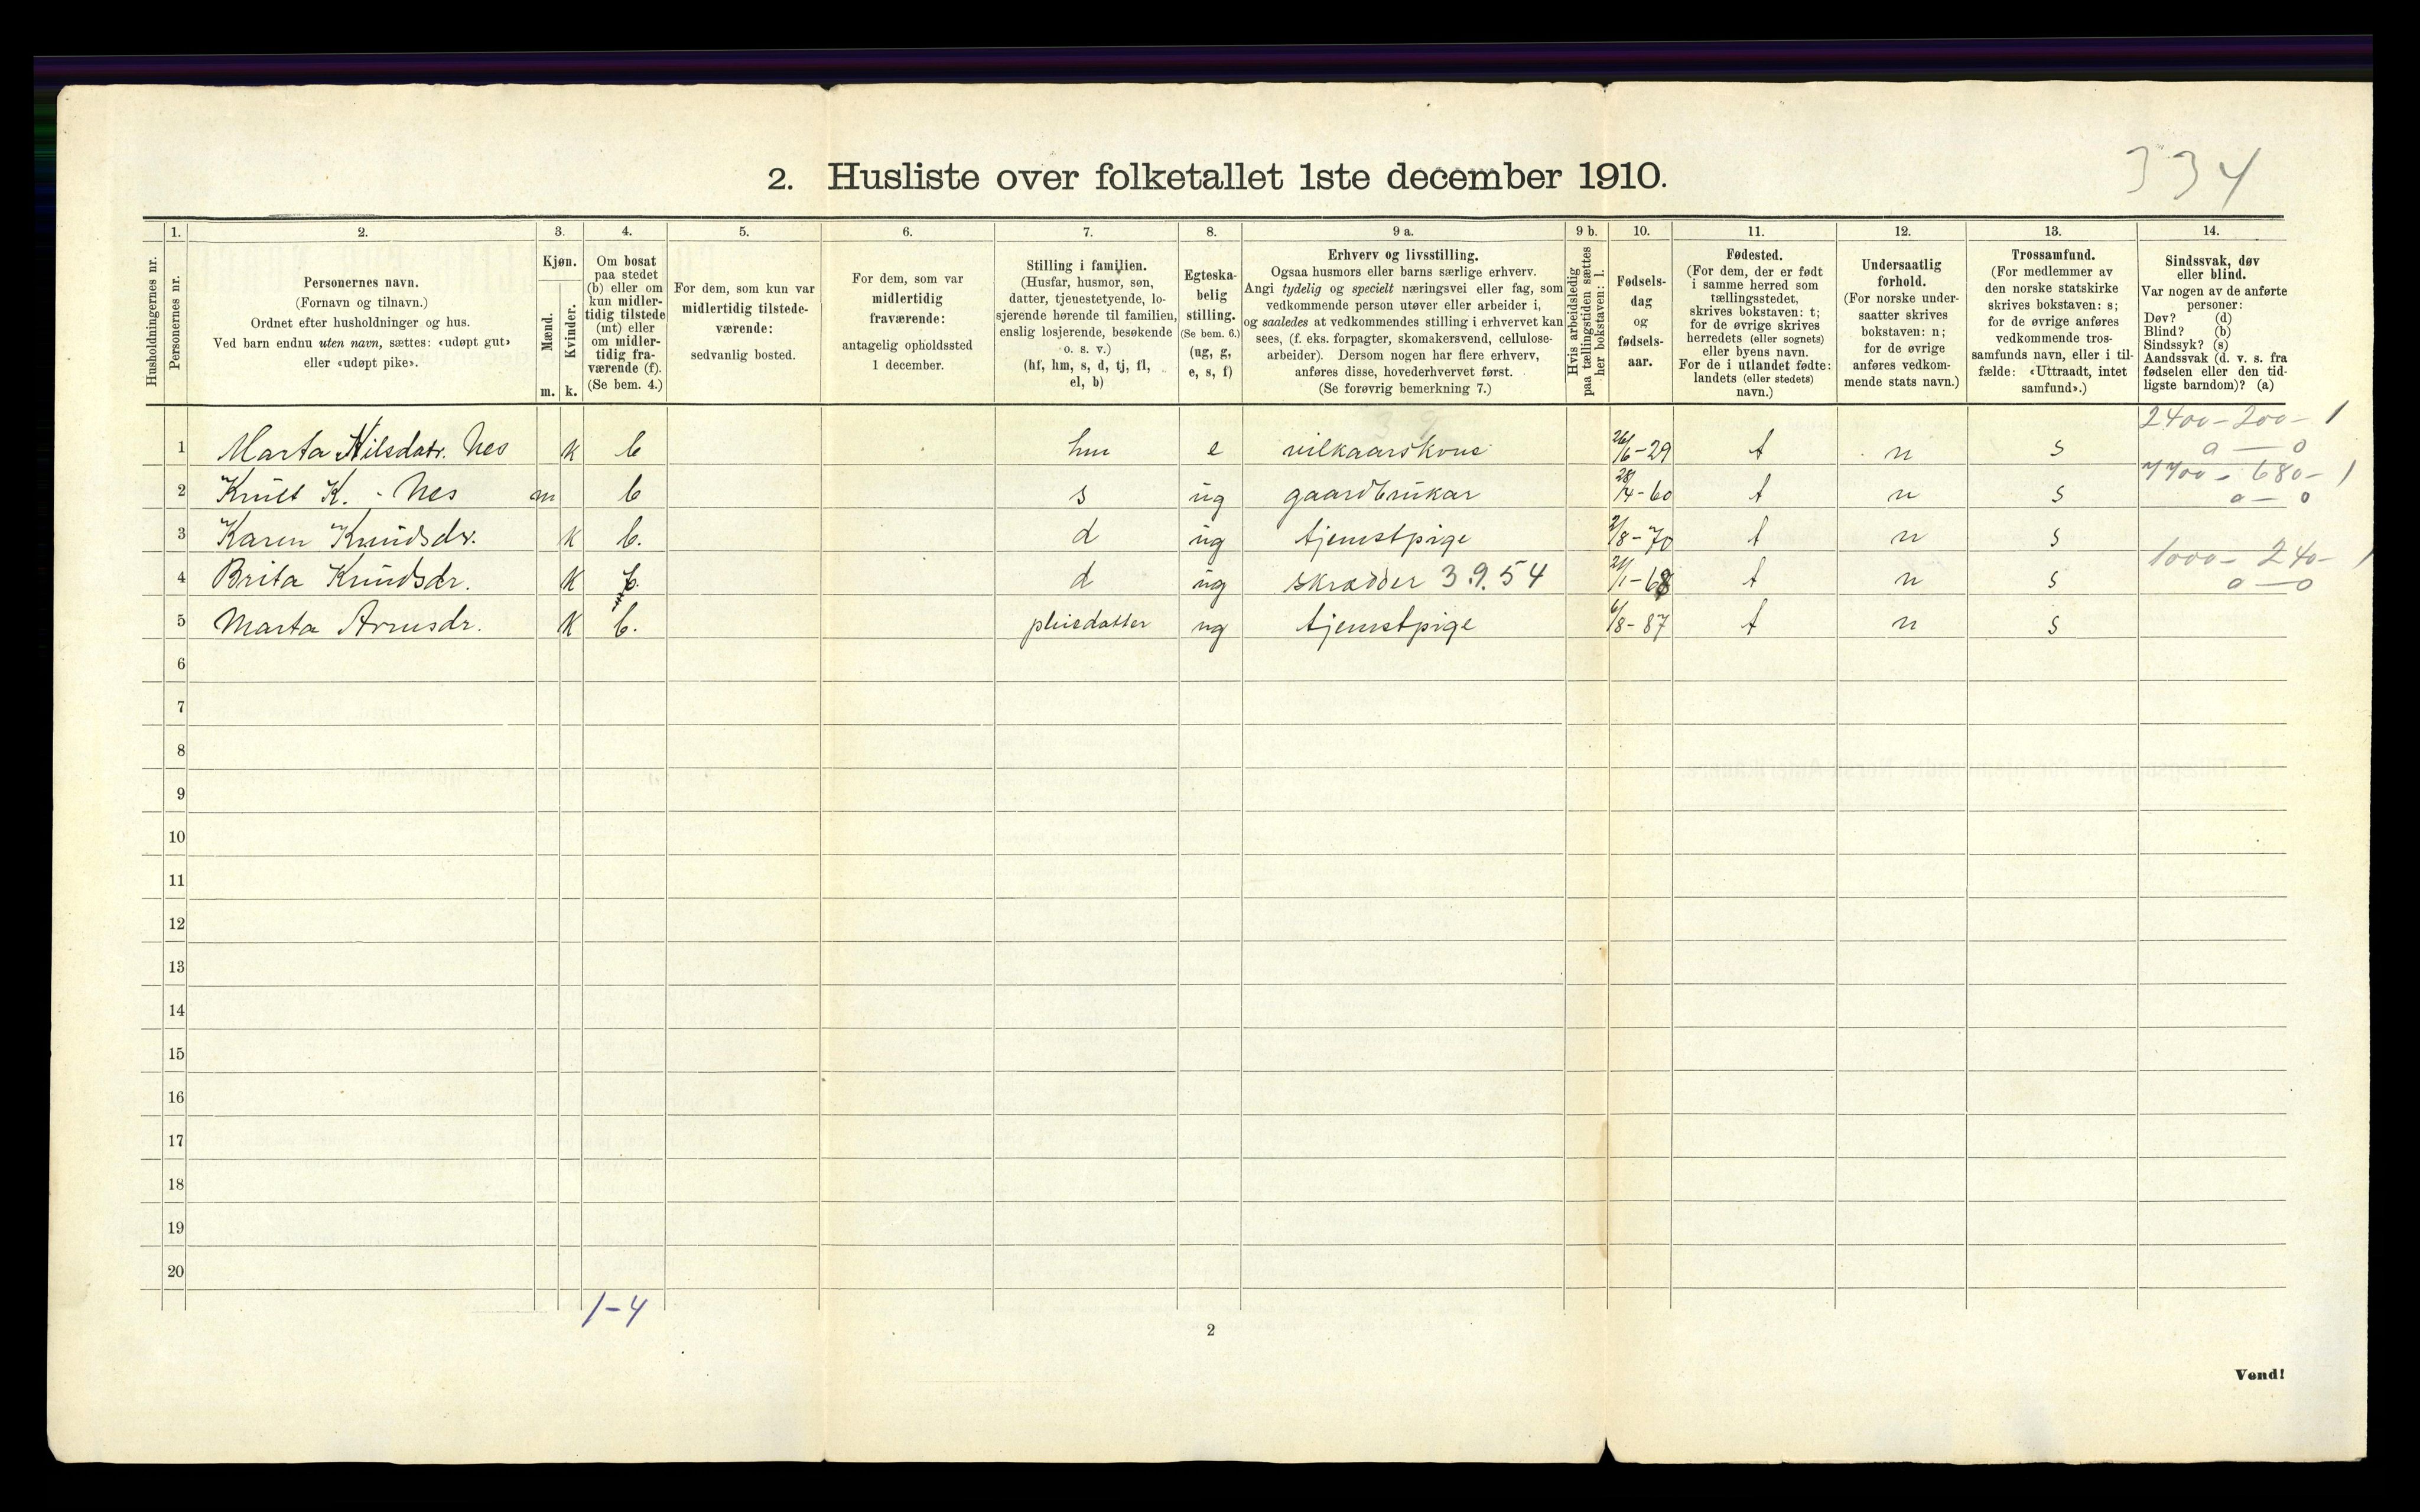 334
2. Husliste over folketallet 1ste december 1910.
Husholdningernes nr.
1.
Personernes nr.
2.
Personernes navn.
(Fornavn og tilnavn.)
Ordnet efter husholdninger og hus.
Ved barn endnu uten navn, sættes: «udøpt gut»
eller «udøpt pike».
3.
Kjøn.
Mænd.
Kvinder.
m. k.
4.
Om bosat
paa stedet
(b) eller om
kun midler-
tidig tilstede
(mt) eller
om midler-
tidig fra-
værende (f).
(Se bem. 4.)
5.
For dem, som kun var
midlertidig tilstede-
værende:
sedvanlig bosted.
6.
For dem, som var
midlertidig
fraværende:
antagelig opholdssted
1 december.
7.
Stilling i familien.
(Husfar, husmor, søn,
datter, tjenestetyende, lo-
sjerende hørende til familien,
enslig losjerende, besøkende
o. s. v.)
(hf, hm, s, d, tj, fl,
el, b)
8.
Egteska-
belig
stilling.
(Se bem. 6.)
(ug, g,
e, s, f)
9 a.
Erhverv og livsstilling.
Ogsaa husmors eller barns særlige erhverv.
Angi tydelig og specielt næringsvei eller fag, som
vedkommende person utøver eller arbeider i,
og saaledes at vedkommendes stilling i erhvervet kan
sees, (f. eks. forpagter, skomakersvend, cellulose-
arbeider). Dersom nogen har flere erhverv,
anføres disse, hovederhvervet først.
(Se forøvrig bemerkning 7.)
9 b.
Hvis arbeidsledig
paa tællingstiden sættes
her bokstaven: l.
10.
Fødsels-
dag
og
fødsels-
aar.
11.
Fødested.
(For dem, der er født
i samme herred som
tællingsstedet,
skrives bokstaven: t;
for de øvrige skrives
herredets (eller sognets)
eller byens navn.
For de i utlandet fødte:
landets (eller stedets)
navn.)
12.
Undersaatlig
forhold.
(For norske under-
saatter skrives
bokstaven: n;
for de øvrige
anføres vedkom-
mende stats navn.)
13.
Trossamfund.
(For medlemmer av
den norske statskirke
skrives bokstaven: s;
for de øvrige anføres
vedkommende tros-
samfunds navn, eller i til-
fælde: «Uttraadt, intet
samfund».)
14.
Sindssvak, døv
eller blind.
Var nogen av de anførte
personer:
Døv? (d)
Blind? (b)
Sindssyk? (s)
Aandssvak (d. v. s. fra
fødselen eller den tid-
ligste barndom)? (a)
2400 - 200 - 1
1 Marta Nilsdatr. Nes k b hm e vilkaarskone 26/6-29 t n s 0 — 0
7700 - 680 - 1
2 Knut K. - Nes m b s ug gaardbrukar 28/4-60 t n s 0 — 0
3 Karen Knudsdr. k b. d ug tjenstpige 2/8-70 t n s
1000 - 240 - 1
4 Brita Knudsdr. k b. d ug skrædder 3.9.54 21/1-68 t n s 0 — 0
5 Marta Arnesdr. k b. pleiedatter ug tjenstpige 6/8-87 t n s
6
7
8
9
10
11
12
13
14
15
16
17
18
19
20
1-4
2
Vend!